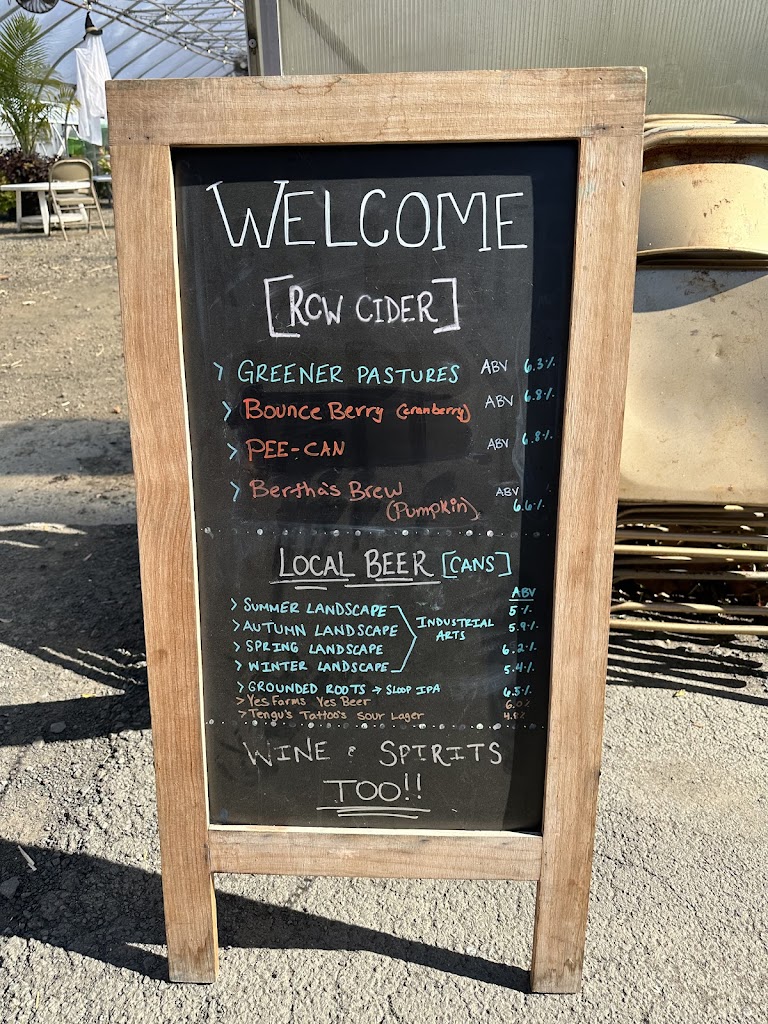 WELCOME
[RCW CIDER]
> GREENER PASTURES ABV 6.3%
> Bounce Berry (cranberry) ABV 6.8%
> PEE-CAN ABV 6.8%
> Bertha's Brew ABV
(Pumpkin) 6.6%
LOCAL BEER [CANS]
ABV
> SUMMER LANDSCAPE 5%
> AUTUMN LANDSCAPE INDUSTRIAL ARTS 5.9%
> SPRING LANDSCAPE 6.2%
> WINTER LANDSCAPE 5.4%
> GROUNDED ROOTS → SLOOP IPA 6.5%
> Yes Farms Yes Beer 6.0%
> Tengu's Tattoo's Sour Lager
WINE & SPIRITS
TOO!!